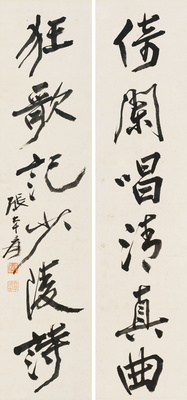 倚闌唱清真曲
狂歌記少陵詩
張大千